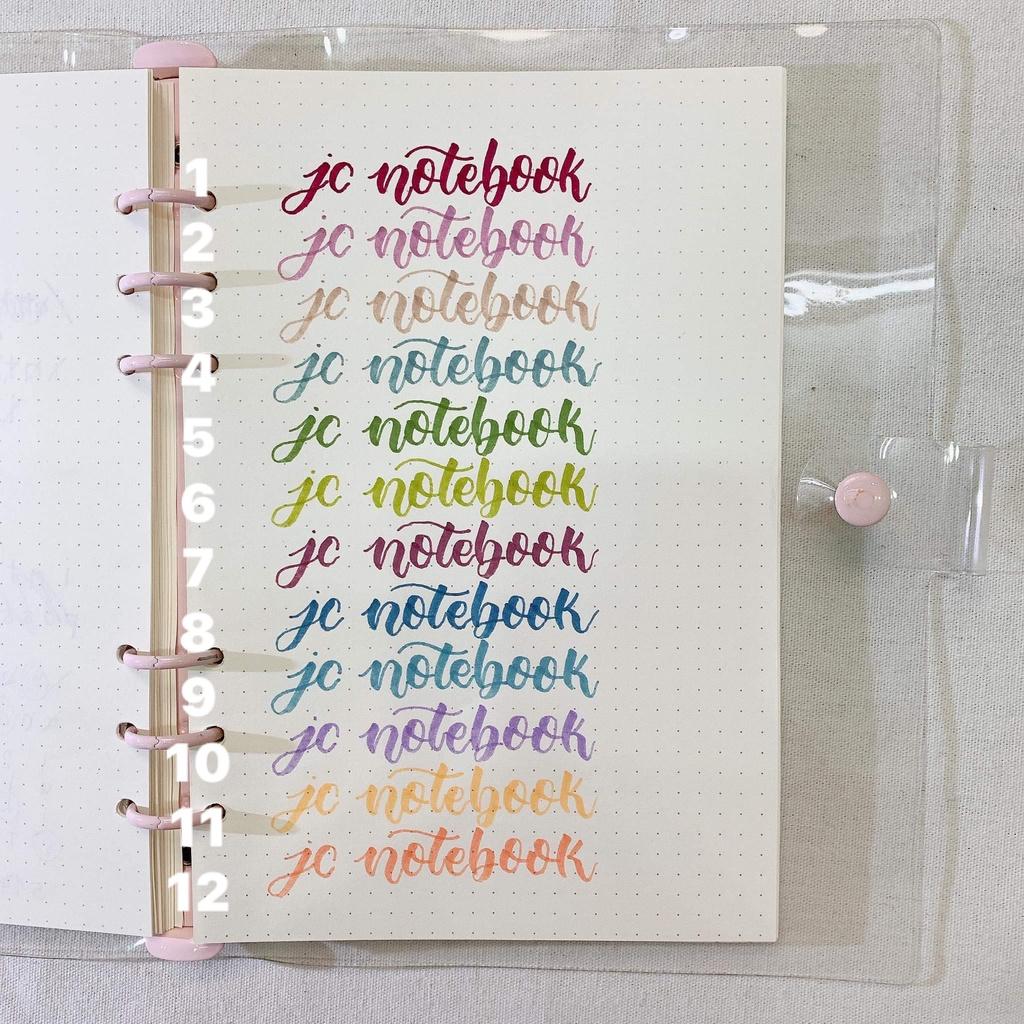 1 jc notebook
2 jc notebook
3 jc notebook
4 jc notebook
5 jc notebook
6 jc notebook
7 jc notebook
8 jc notebook
9 jc notebook
10 jc notebook
11 jc notebook
12 jc notebook